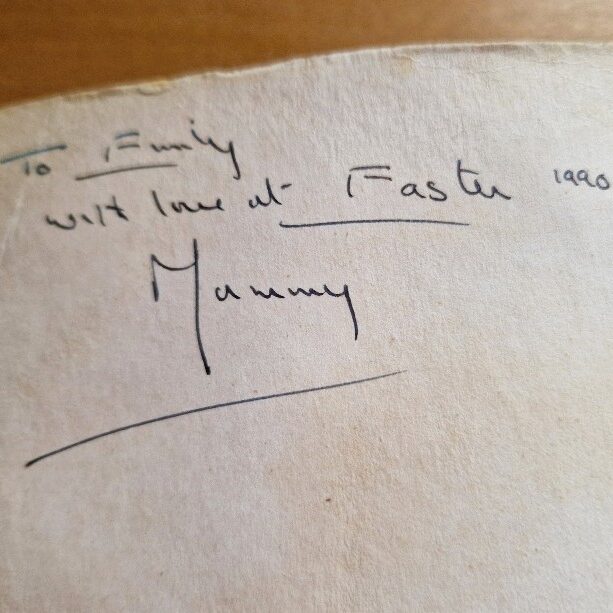 To Emily
with love at Easter 1990
Mummy